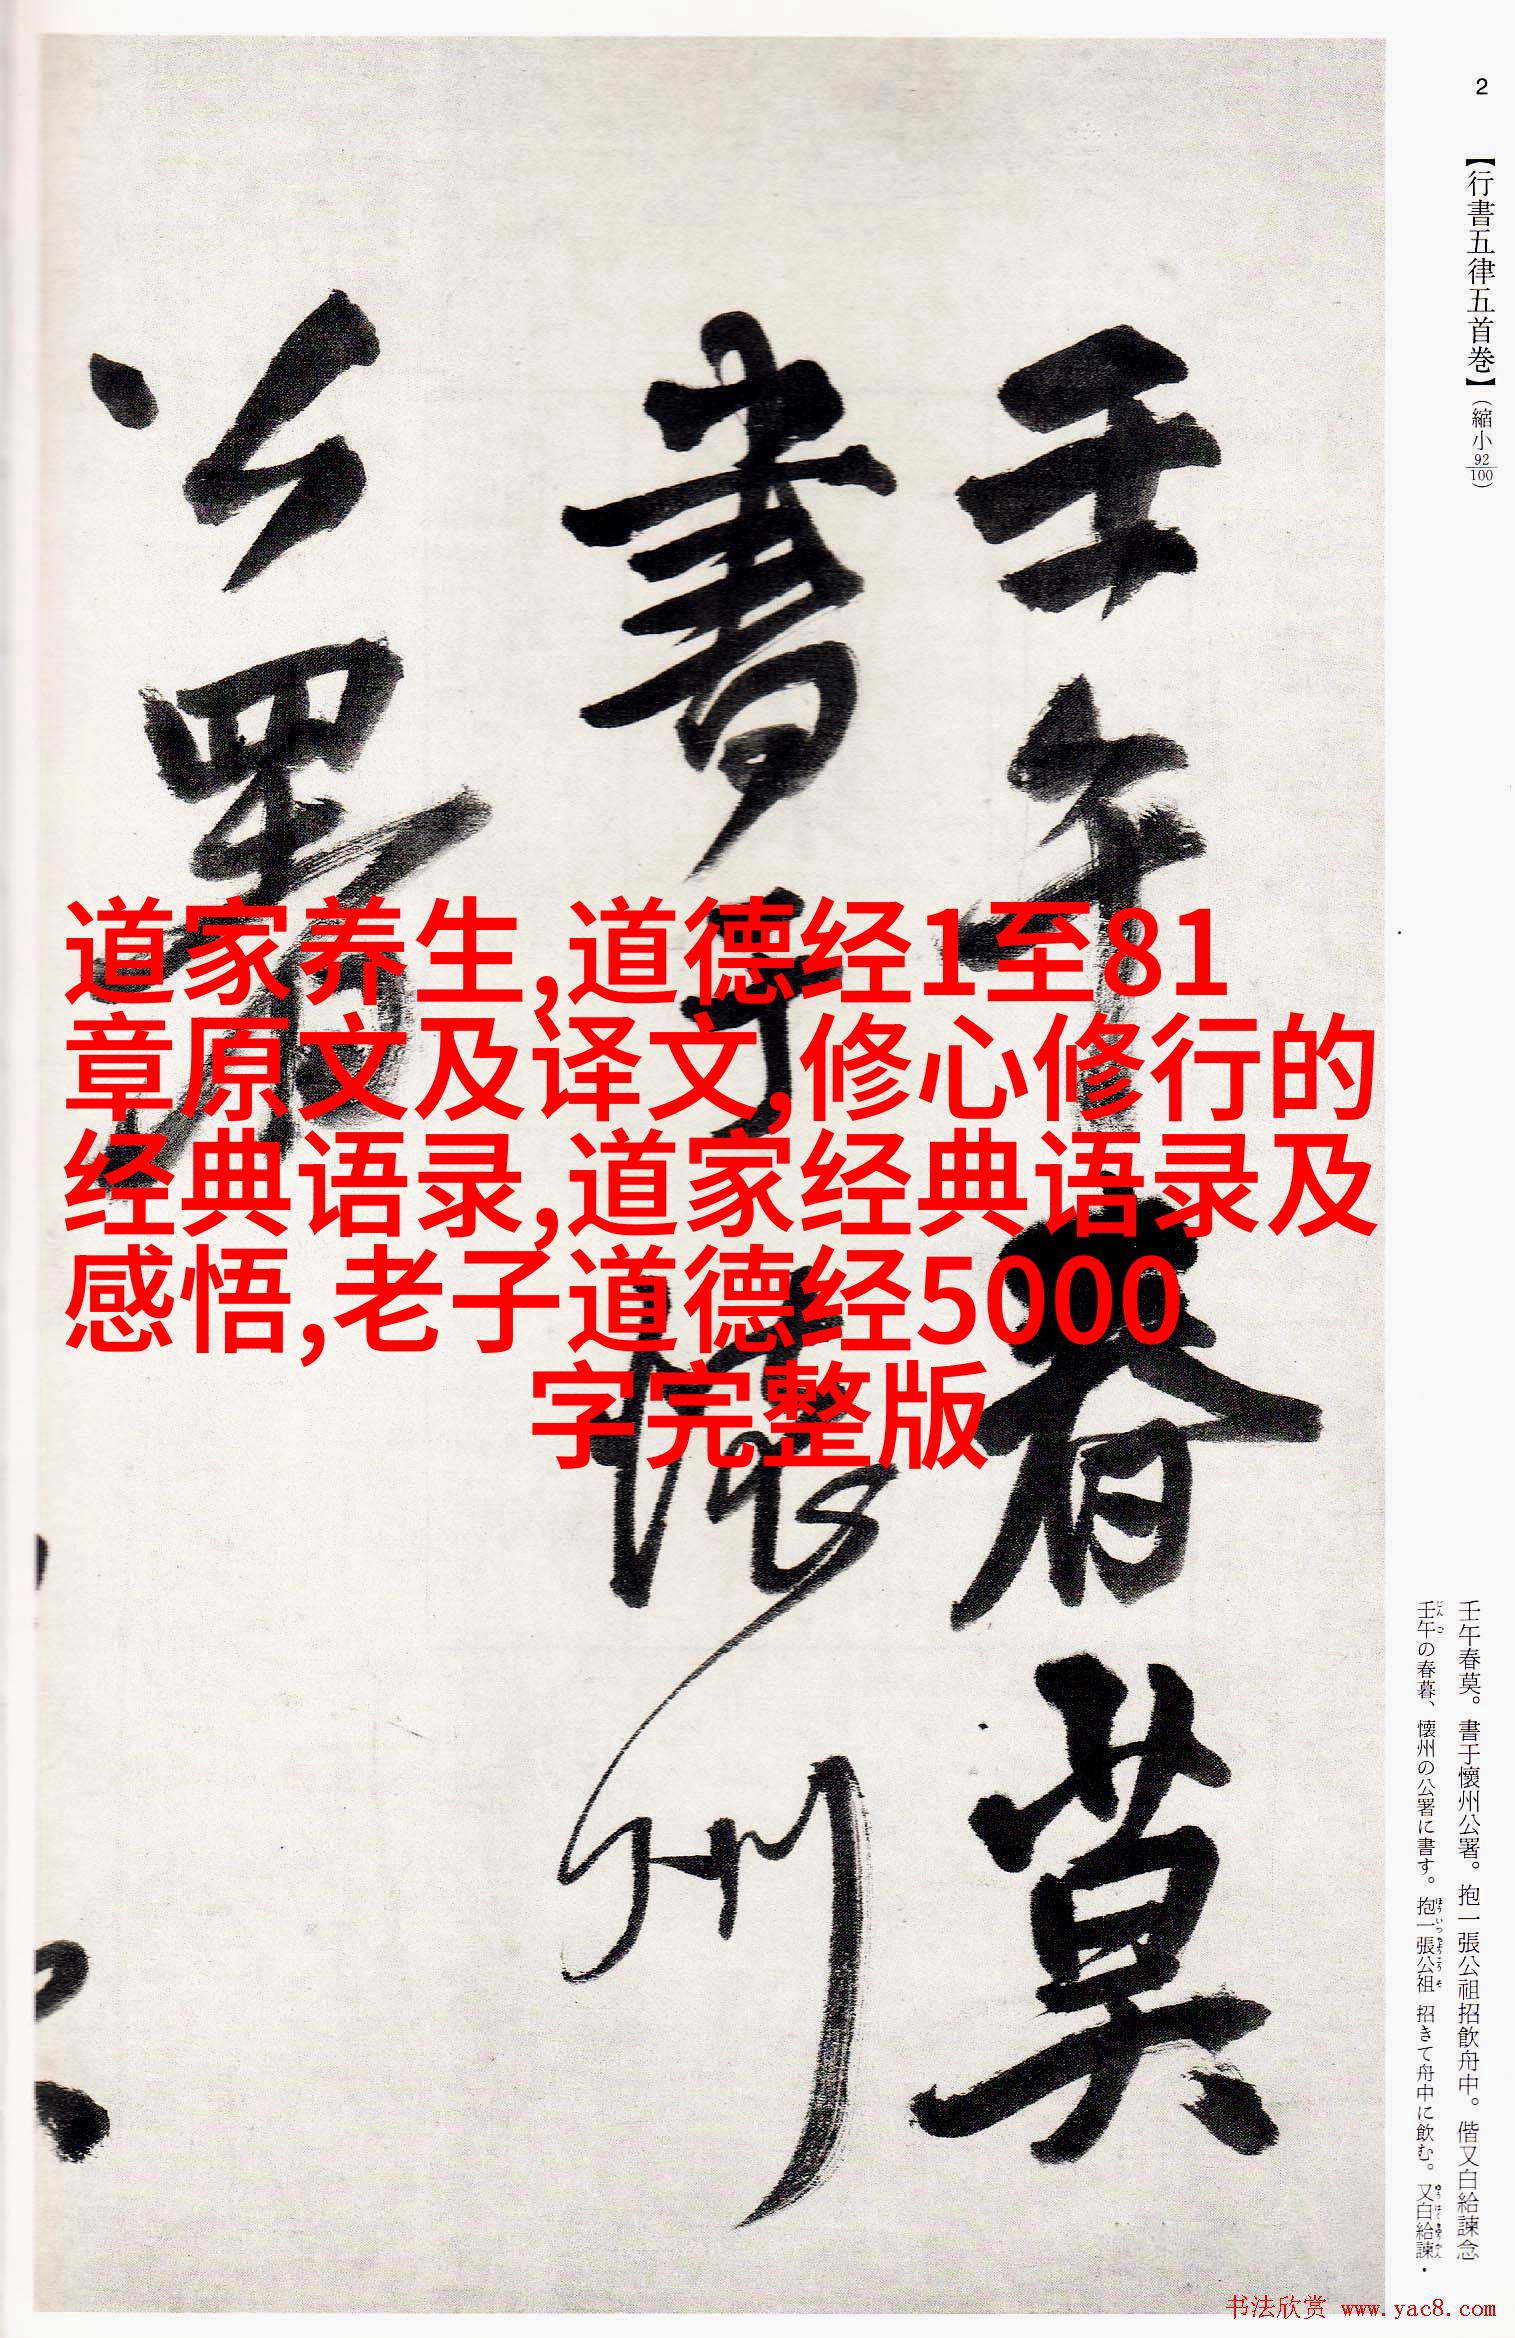 2
【行書五律五首巻】（縮小92/100）
壬午春莫
書于懷州
公署
道家养生,道德经1至81
章原文及译文,修心修行的
经典语录,道家经典语录及
感悟,老子道德经5000
字完整版
壬午春莫。書于懷州公署。抱一張公祖招飲舟中。偕又白給諫念
壬午の春暮、懐州の公署に書す。抱一張公祖 招きて舟中に飲む。又白給諫・
书法欣赏 www.yac8.com